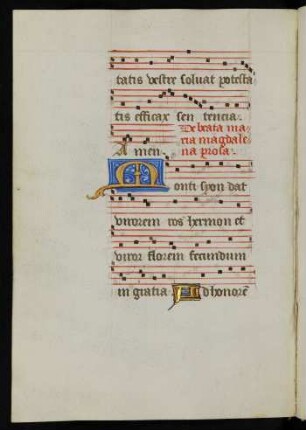 tatis vestre soluat potesta
tis efficax sen tencia.
De beata ma
ria magdale
A men.
na prosa.
Monti syon dat
virorem ros hermon et
viror florem fecundum
in gratia. Ad honorē